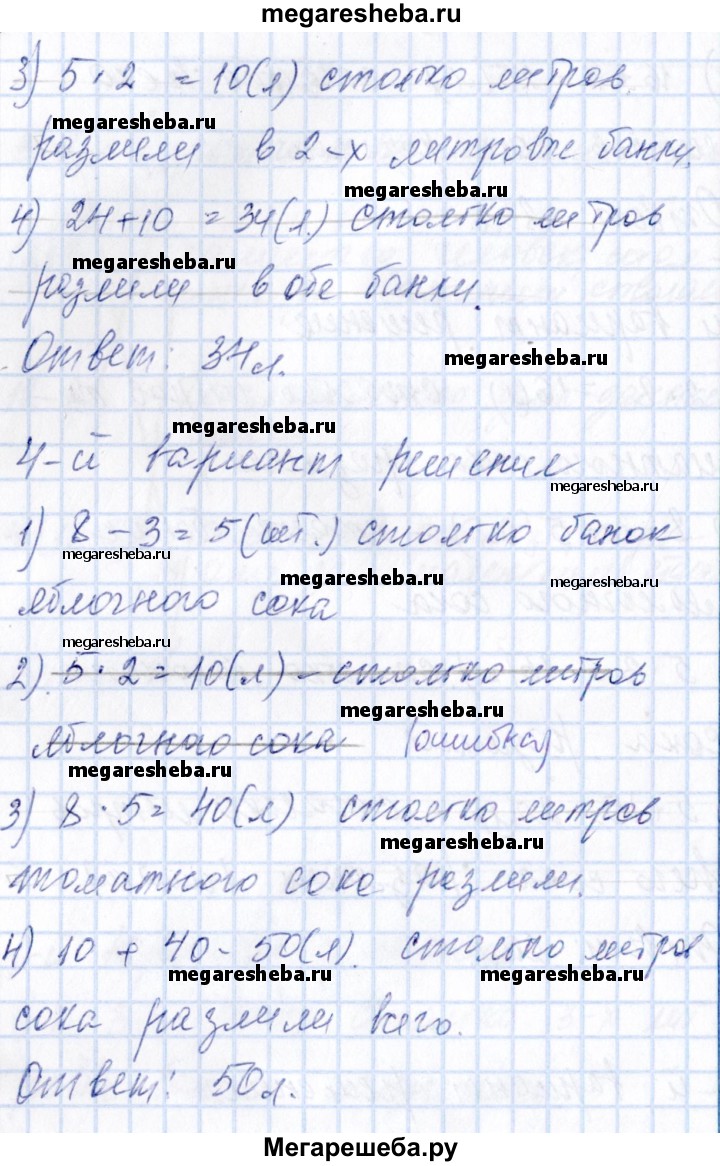 megaresheba.ru
3) 5 · 2 = 10(л) столько литров
megaresheba.ru
разлили в 2-х литровые банки.
megaresheba.ru
4) 24+10 = 34(л) столько литров
megaresheba.ru
разлили в обе банки.
Ответ: 34л.
megaresheba.ru
megaresheba.ru
4-й вариант решения
megaresheba.ru
1) 8 - 3 = 5(шт.) столько банок
megaresheba.ru
megaresheba.ru
megaresheba.ru
яблочного сока
megaresheba.ru
2) 5 · 2 = 10(л) - столько литров
megaresheba.ru
яблочного сока (ошибка)
megaresheba.ru
3) 8 · 5 = 40(л) столько литров
megaresheba.ru
томатного сока разлили.
4) 10 + 40 - 50(л). столько литров
megaresheba.ru megaresheba.ru
сока разлили всего.
Ответ: 50л.
Мегарешеба.ру